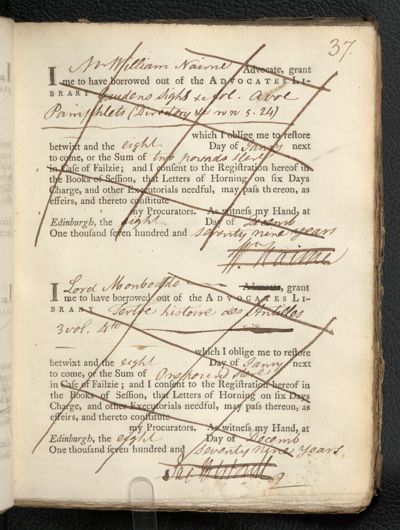 37.
I Mr William Nairne Advocate, grant
me to have borrowed out of the ADVOCATES LI-
BRARY sight &c vol. a vol
Pamphlets (Directory &c
which I oblige me to reſtore
betwixt and the eight Day of Janry next
to come, or the Sum of two pounds sterl
in Caſe of Failzie; and I conſent to the Regiſtration hereof in
the Books of Seſſion, that Letters of Horning on ſix Days
Charge, and other Executorials needful, may paſs thereon, as
effeirs, and thereto conſtitute
my Procurators. As witneſs my Hand, at
Edinburgh, the eight Day of Decemb
One thouſand ſeven hundred and seventy nine years
W. Nairne
I Lord Monboddo Advocate, grant
me to have borrowed out of the ADVOCATES LI-
BRARY Tertre histoire des Antilles
3 vol. 4to
which I oblige me to reſtore
betwixt and the eight Day of Janry next
to come, or the Sum of One pound sterl
in Caſe of Failzie; and I conſent to the Regiſtration hereof in
the Books of Seſſion, that Letters of Horning on ſix Days
Charge, and other Executorials needful, may paſs thereon, as
effeirs, and thereto conſtitute
my Procurators. As witneſs my Hand, at
Edinburgh, the eight Day of Decemb
One thouſand ſeven hundred and seventy nine years